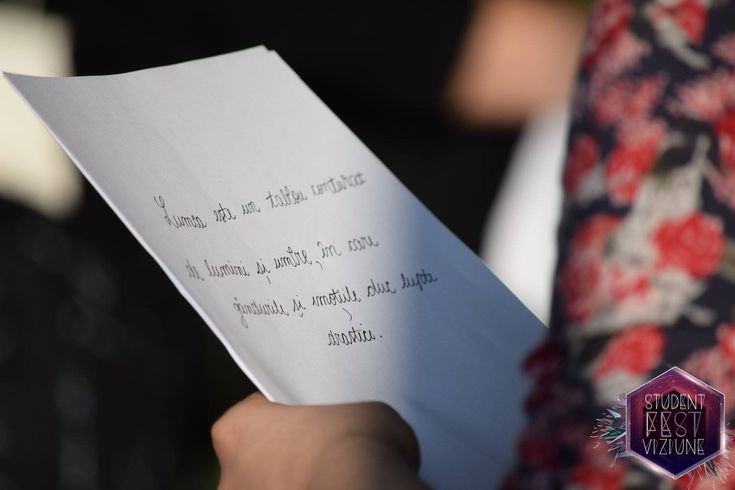 Lumea este un tablou conturat
de lumini și umbre, în care
gândurile și emoțiile duc lupte
drastice.
STUDENT
FEST
VIZIUNE